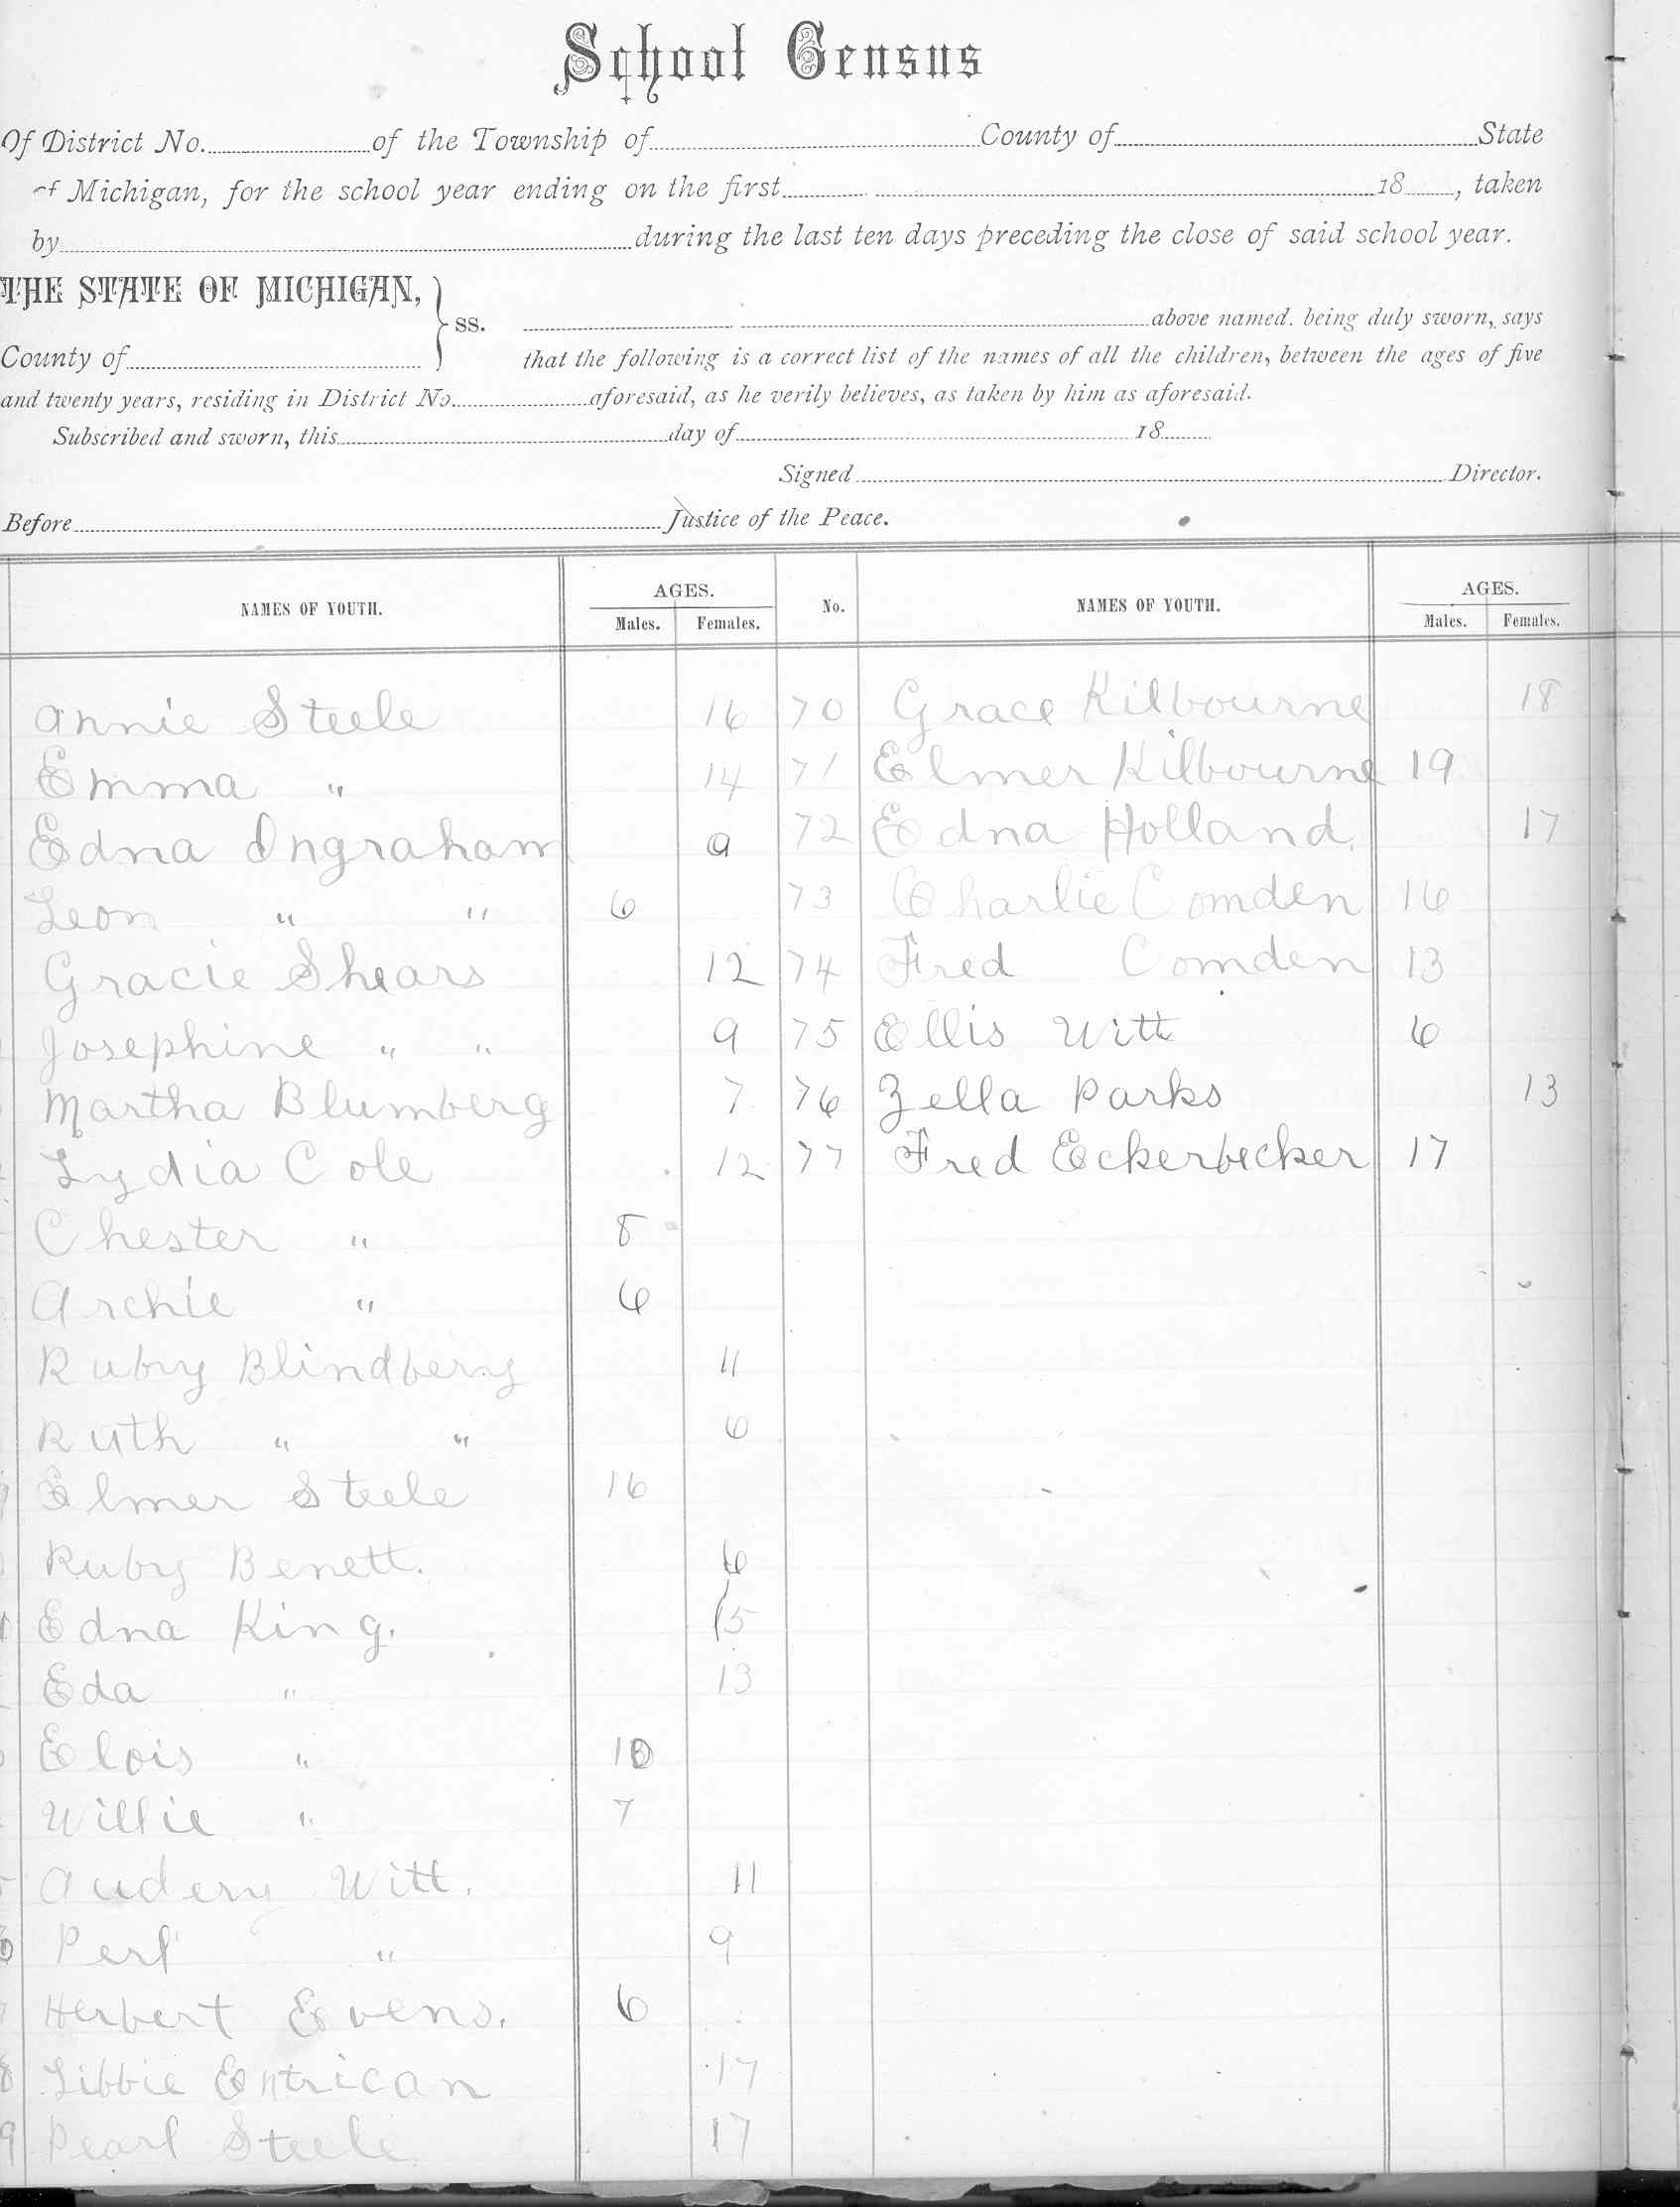 School Census
Of District No. of the Township of County of State
of Michigan, for the school year ending on the first 18 , taken
by during the last ten days preceding the close of said school year.
THE STATE OF MICHIGAN,
ss.
above named. being duly sworn, says
County of
that the following is a correct list of the names of all the children, between the ages of five
and twenty years, residing in District No. aforesaid, as he verily believes, as taken by him as aforesaid.
Subscribed and sworn, this day of 18
Signed Director.
Before Justice of the Peace.
NAMES OF YOUTH. AGES. Males. Females.
Annie Steele 16
Emma " 14
Edna Ingraham 9
Leon " " 6
Gracie Shears 12
Josephine " " 9
Martha Blumberg 7
Lydia Cole 12
Chester " 8
Archie " 6
Ruby Blindbery 11
Ruth " " 6
Elmer Steele 16
Ruby Benett. 6
Edna King. 15
Eda " 13
Elois " 10
Willie " 7
Audery Witt. 11
Perl " 9
Herbert Evens. 6
8 Libbie Entrican 17
9 Pearl Steele 17
No. NAMES OF YOUTH. AGES. Males. Females.
70 Grace Kilbourne 18
71 Elmer Kilbourne 19
72 Edna Holland. 17
73 Charlie Comden 16
74 Fred Comden 13
75 Ellis Witt 6
76 Zella Parks 13
77 Fred Eckerbecker 17